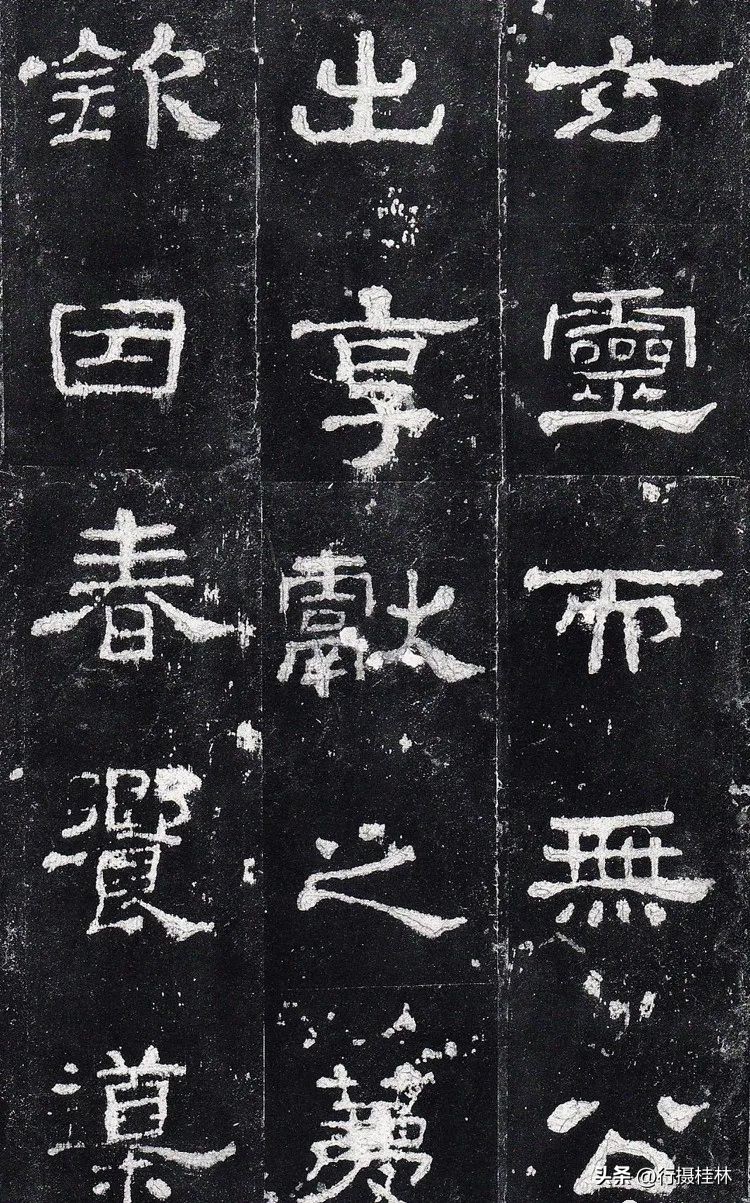 玄靈而無公
出享獻之薦
欽因春饗導
头条 @行摄桂林